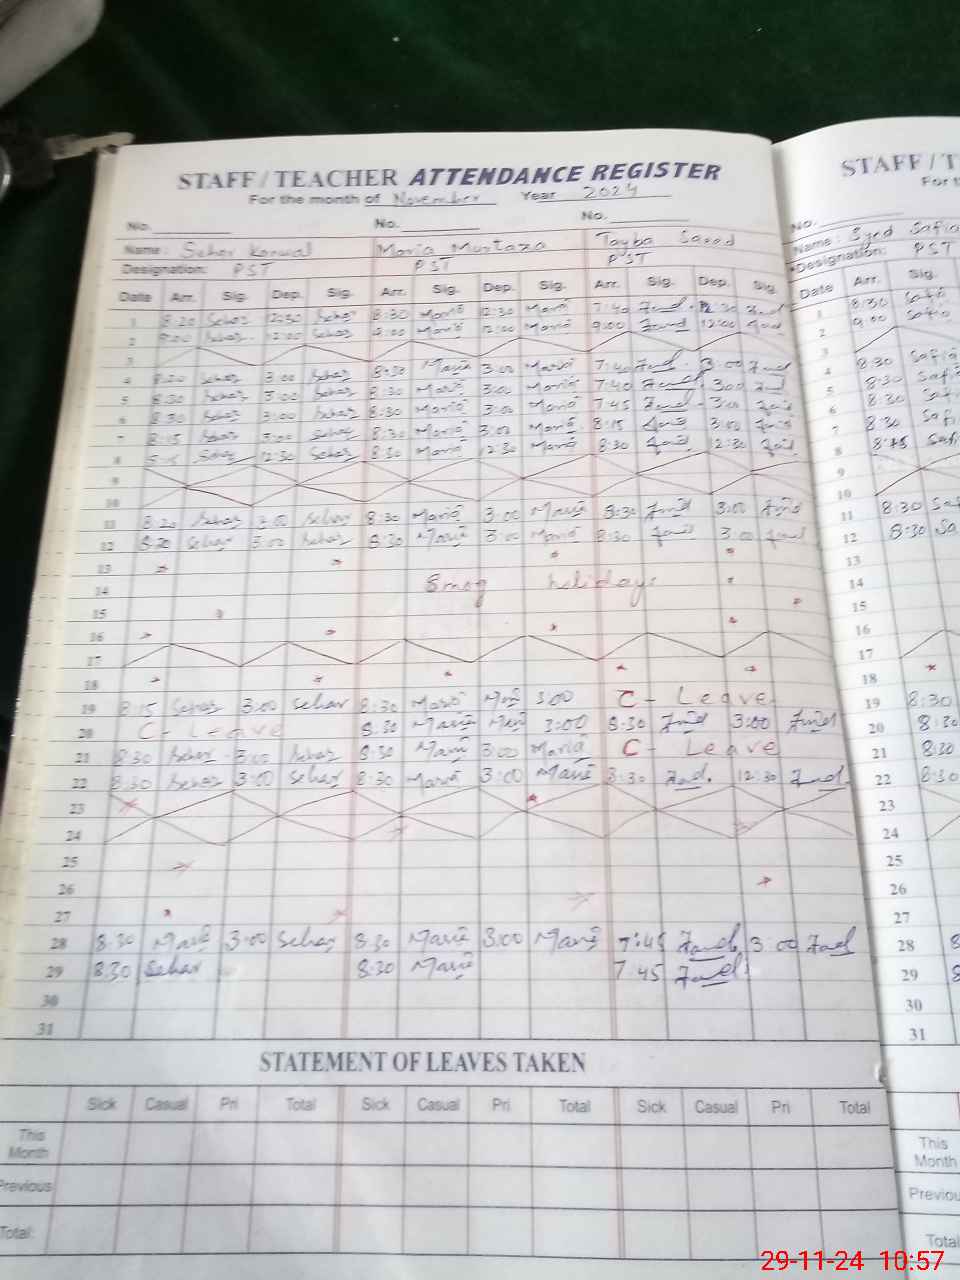 STAFF / TEACHER ATTENDANCE REGISTER
For the month of November Year 2024
No. No. No.
Name: Sehar Kanwal Maria Murtaza Tayba Saeed
Designation: PST PST PST
Date Arr. Sig. Dep. Sig. Arr. Sig. Dep. Sig. Arr. Sig. Dep. Sig.
1 8:20 Sehar 12:30 Sehar 8:30 Maria 12:30 Maria 7:40
2 9:00 Sehar 12:00 Sehar 9:00 Maria 12:00 Maria 9:00 12:00
3
4 8:30 Sehar 3:00 Sehar 8:30 Maria 3:00 Maria 7:40 3:00
5 8:30 Sehar 3:00 Sehar 8:30 Maria 3:00 Maria 7:40 3:00
6 8:30 Sehar 3:00 Sehar 8:30 Maria 3:00 Maria 7:45 3:00
7 8:15 Sehar 3:00 Sehar 8:30 Maria 3:00 Maria 8:15 3:00
8 Sehar 12:30 Sehar 8:30 Maria 12:30 Maria 8:30 12:30
9
10
11 8:20 Sehar 3:00 Sehar 8:30 Maria 3:00 Maria 8:30 3:00
12 8:20 Sehar 3:00 Sehar 8:30 Maria 3:00 Maria 8:30 3:00
13
14 Smog holidays
15
16
17
18
19 8:15 Sehar 3:00 Sehar 8:30 Maria Maria 3:00 C - Leave
20 C - Leave 8:30 Maria Maria 3:00 8:30 3:00
21 8:30 Sehar 3:00 Sehar 8:30 Maria 3:00 Maria C - Leave
22 8:30 Sehar 3:00 Sehar 8:30 Maria 3:00 Maria 8:30 12:30
23
24
25
26
27
28 8:30 Maria 3:00 Sehar 8:30 Maria 3:00 Maria 7:45 3:00
29 8:30 Sehar 8:30 Maria 7:45
30
31
STATEMENT OF LEAVES TAKEN
Sick Casual Pri Total Sick Casual Pri Total Sick Casual Pri Total
This Month
Previous
Total:
STAFF / T
For t
No.
Name: Syed Safia
Designation: PST
Date Arr. Sig.
1 8:30 Safia
2 9:00 Safia
3
4 8:30 Safia
5 8:30 Safi
6 8:30 Saf
7 8:30 Saf
8 8:15 Safi
9
10
11 8:30 Sa
12 8:30 Sa
13
14
15
16
17
18
19 8:30
20 8:30
21 8:30
22 8:30
23
24
25
26
27
28 8
29 8
30
31
This Month
Previou
Total
29-11-24 10:57